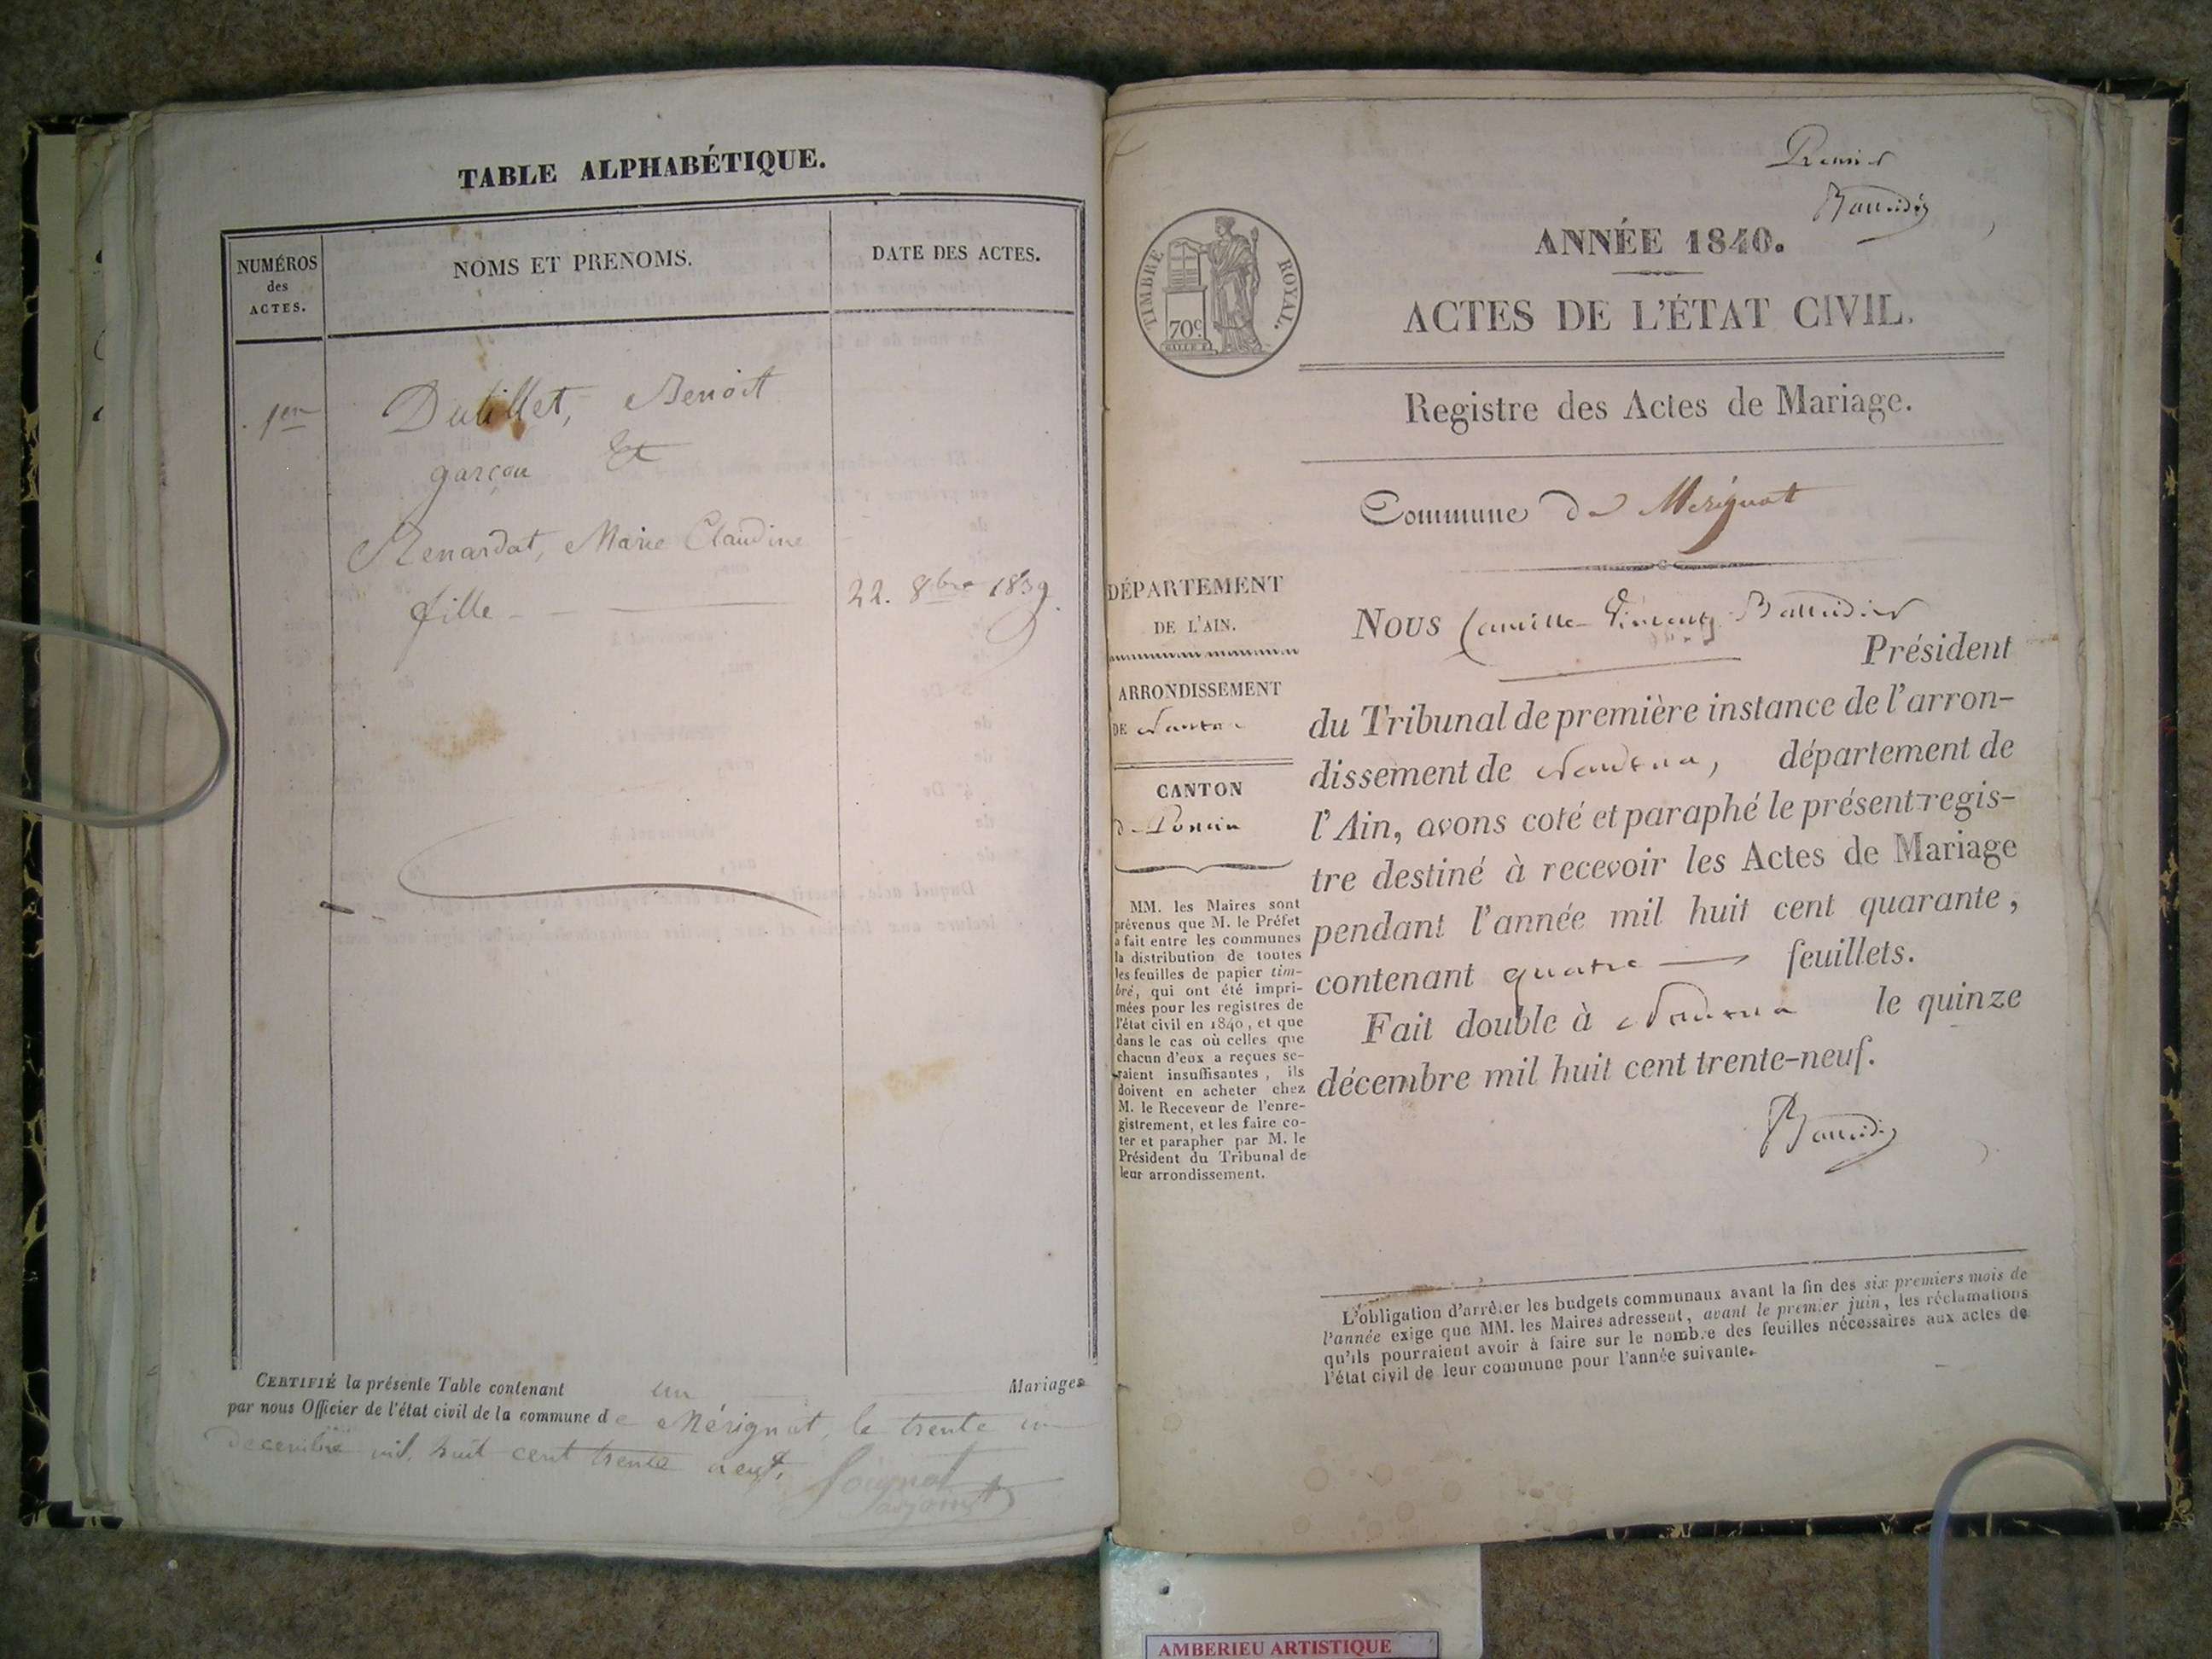 TABLE ALPHABÉTIQUE.
NUMÉROS
des
ACTES.
NOMS ET PRENOMS.
DATE DES ACTES.
1er
Dutillet, Benoit
garçon Et
Renardat, Marie Claudine
fille
22. 8bre 1839.
CERTIFIÉ la présente Table contenant un Mariages
par nous Officier de l'état civil de la commune de Mérignat, le trente un
decembre mil huit cent trente neuf.
adjoint
Premier
ANNÉE 1840.
TIMBRE ROYAL.
70c
ACTES DE L'ÉTAT CIVIL.
Registre des Actes de Mariage.
Commune de Mérignat
DÉPARTEMENT
DE L'AIN.
ARRONDISSEMENT
DE Nantua
CANTON
de Poncin
MM. les Maires sont
prévenus que M. le Préfet
a fait entre les communes
la distribution de toutes
les feuilles de papier tim-
bré, qui ont été impri-
mées pour les registres de
l'état civil en 1840, et que
dans le cas où celles que
chacun d'eux a reçues se-
raient insuffisantes, ils
doivent en acheter chez
M. le Receveur de l'enre-
gistrement, et les faire co-
ter et parapher par M. le
Président du Tribunal de
leur arrondissement.
Nous Camille Vincent Baudier
Président
du Tribunal de première instance de l'arron-
dissement de Nantua, département de
l'Ain, avons coté et paraphé le présent regis-
tre destiné à recevoir les Actes de Mariage
pendant l'année mil huit cent quarante,
contenant quatre feuillets.
Fait double à Nantua le quinze
décembre mil huit cent trente-neuf.
L'obligation d'arrêter les budgets communaux avant la fin des six premiers mois de
l'année exige que MM. les Maires adressent, avant le premier juin, les réclamations
qu'ils pourraient avoir à faire sur le nombre des feuilles nécessaires aux actes de
l'état civil de leur commune pour l'année suivante.
AMBERIEU ARTISTIQUE